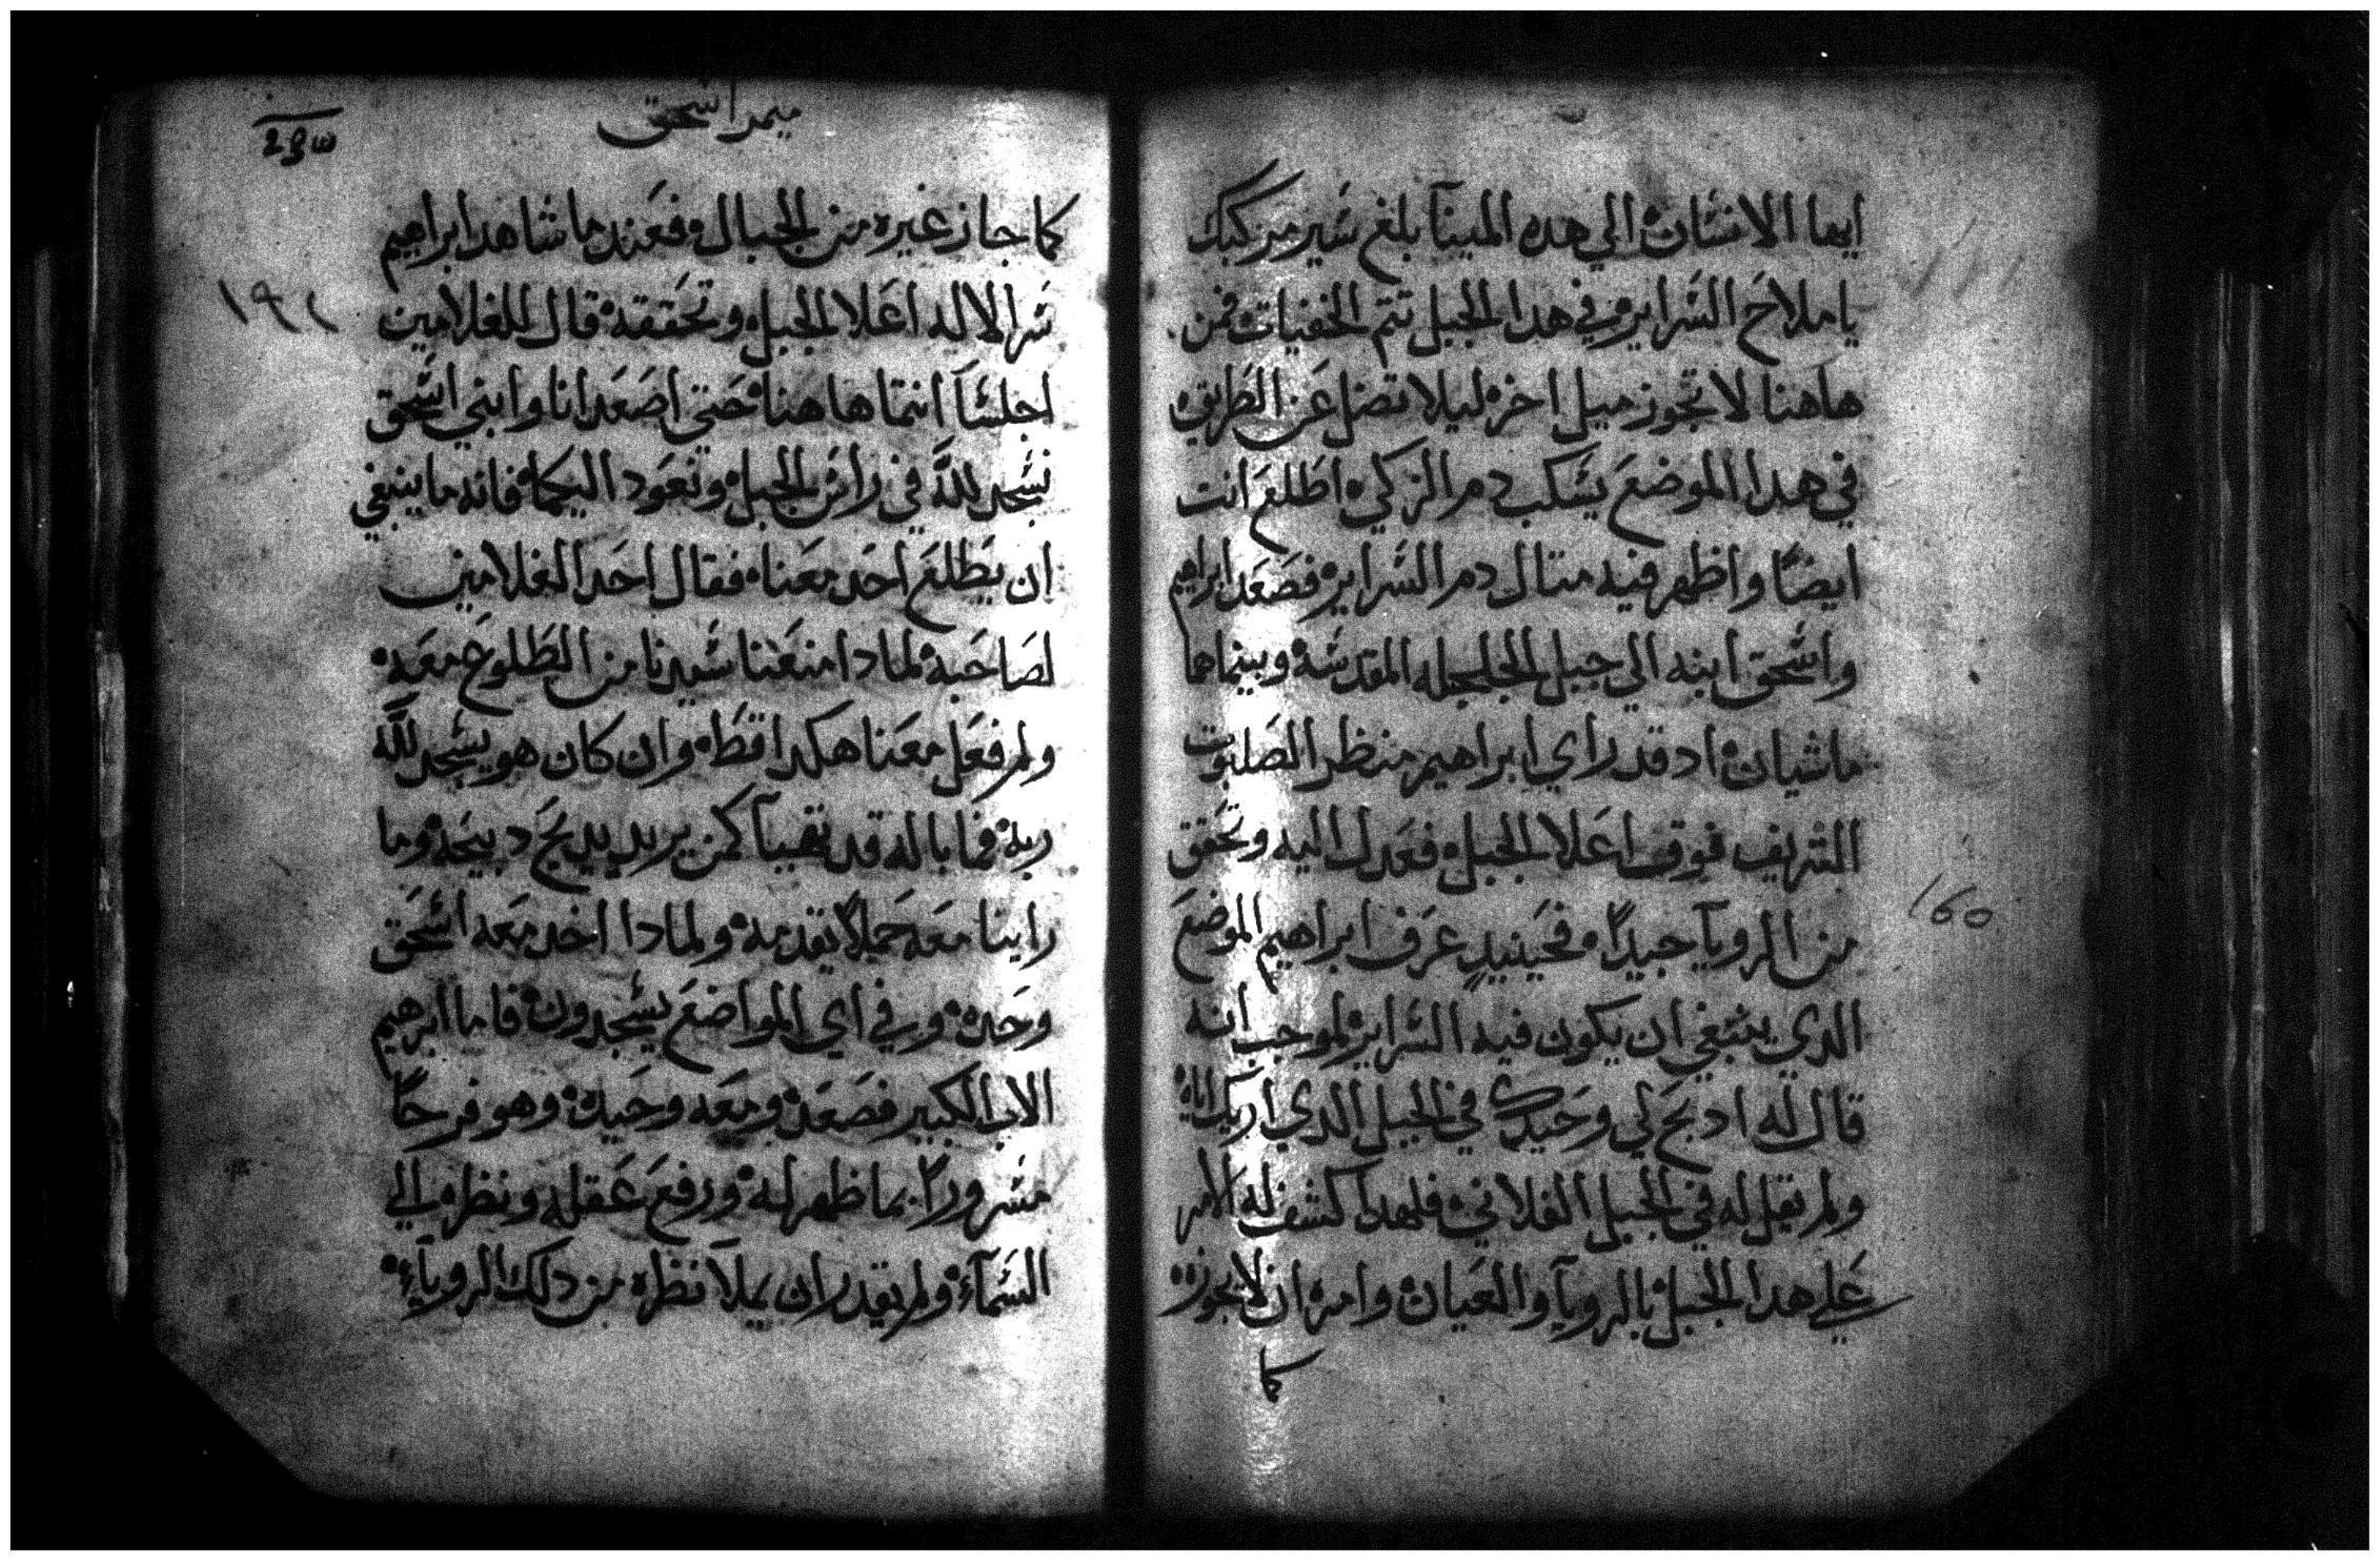 ايها الانسان الي هده المينآ بلغ سير مركبك
يا ملاح السراير في هدا الجبل تتم الخفيات فمن
هاهنا لا تجوز ميل اخر ليلا تضل عن الطريق
في هدا الموضع يسكب دم الزكي اطلع انت
ايضًا واظهر فيه متال دم السراير فصعد ابراهيم
واسحق ابنه الي جبل الجلجله المقدسة وبينما هما
ماشيان اد قد راي ابراهيم منظر الصلبوت
الشريف فوق اعلا الجبل فعدل اليه وتحقق
من الرويآ جيدًا فحينيدٍ عرف ابراهيم الموضع
الدي ينبغي ان يكون فيه السراير لموجب انه
قال له ادبح لي وحيدك في الجبل الدي اريك اياه
ولم يقل له في الجبل الفلاني فلهدا كشف له الامر
علي هدا الجبل بالرويآ والعيان وامره ان لا يجوزه
كما
ميمر اسحق
كما جاز غيره من الجبال فعند ما شاهد ابراهيم
سر الاله اعلا الجبل وتحققه قال للغلامين
اجلسآ انتما هاهنا حتي اصعد انا وابني اسحق
نسجد للَّه في راس الجبل ونعود اليكما فانه ما ينبغي
ان يطلع احد معنا فقال احد الغلامين
لصاحبه لمادا منعنا سيدنا من الطلوع معه
ولم فعل معنا هكدا قط وان كان هو يسجد للَّه
ربه فما باله قد تهيآ كمن يريد يدبح دبيحه وما
راينا معه حملاً يقدمه ولمادا اخد معه اسحق
وحده وفي اي المواضع يسجدون فاما ابرهيم
الاب الكبير فصعد ومعه وحيده وهو فرحًا
مسرورًا بما ظهر له ورفع عقله ونظره الي
السمآء ولم يقدر ان يملآ نظره من دلك الرويآء
١٩٢
160